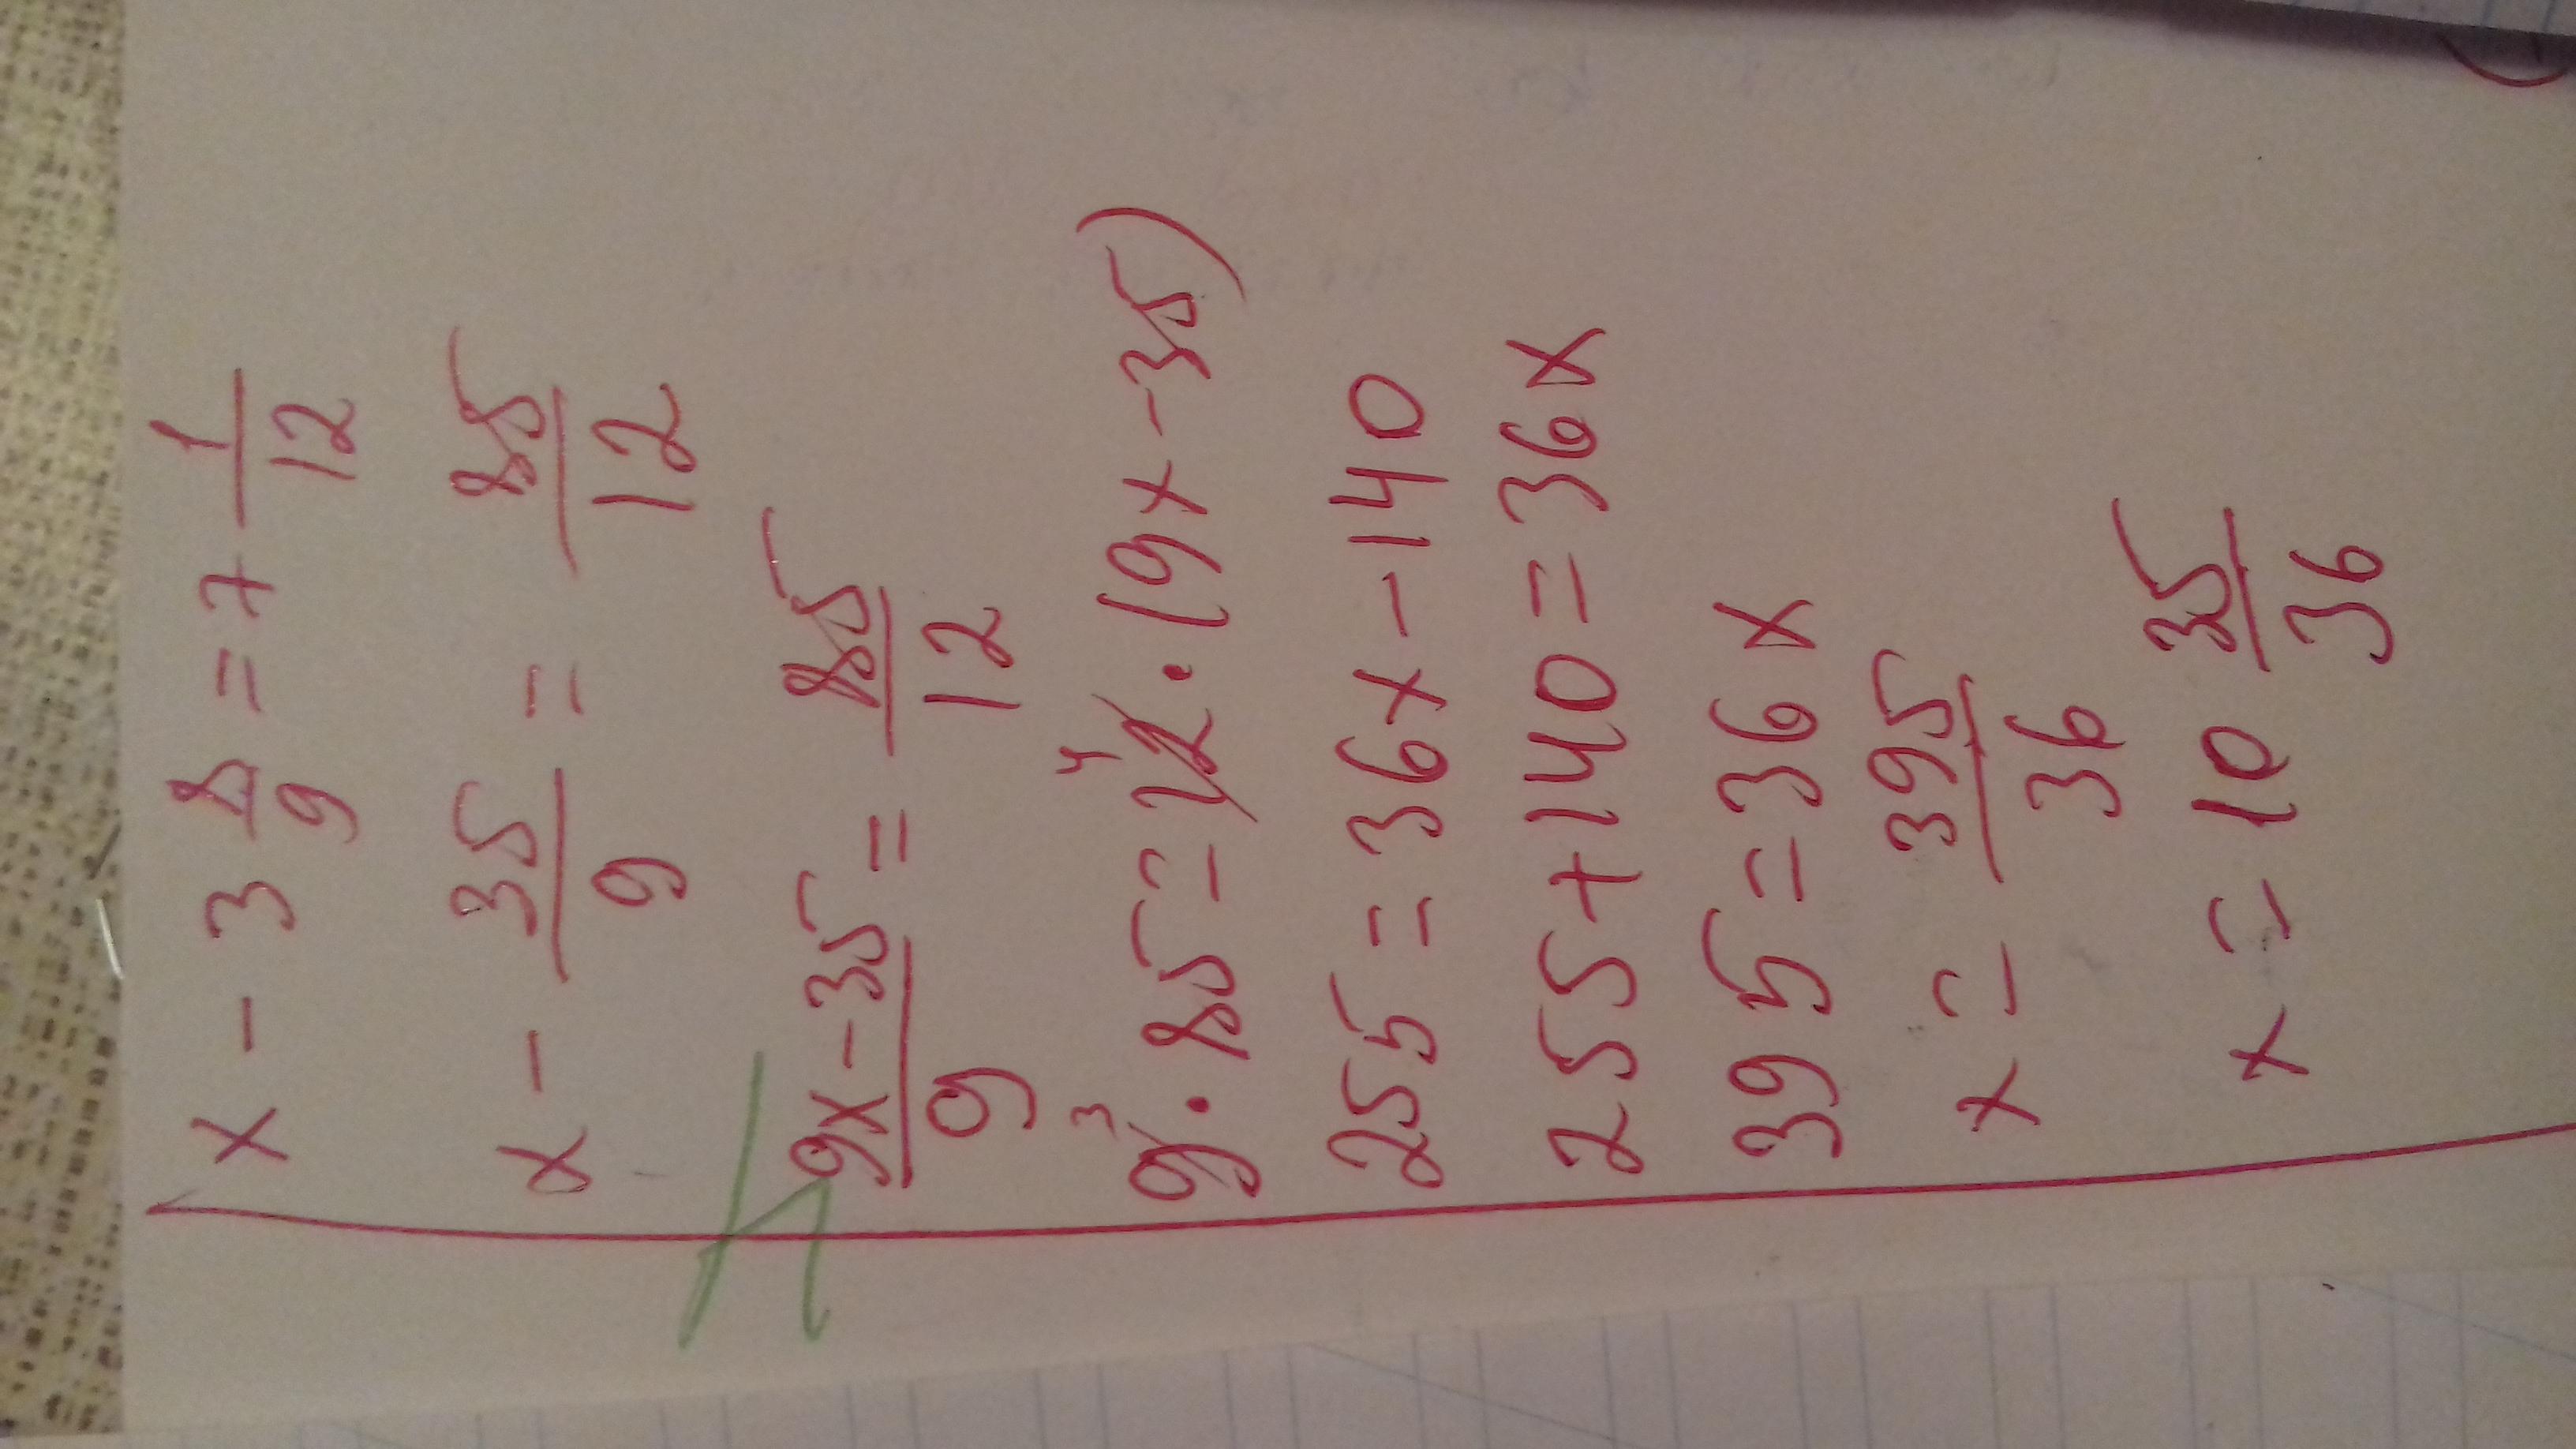 x - 3 8/9 = 7 1/12
x - 35/9 = 85/12
(9x - 35)/9 = 85/12
9³ · 85 = 12⁴ · (9x - 35)
255 = 36x - 140
255 + 140 = 36x
395 = 36x
x = 395/36
x = 10 35/36